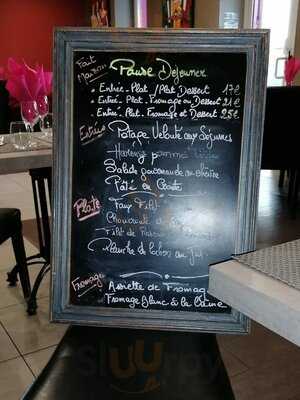 Fait Maison
Pause Dejeuner
Entrée-Plat / Plat Dessert 17€
Entrée-Plat-Fromage ou Dessert 21€
Entrée-Plat-Fromage et Dessert 25€
Entrées
Potage Velouté aux Légumes
Hareng pomme
Salade gourmande au
Pâté en Croûte
Plats
Faux Filet
Choucroute
Filet de
Planche de
au Jus
Fromages
Assiette de Fromage
Fromage blanc à la Crème
Sluurpy